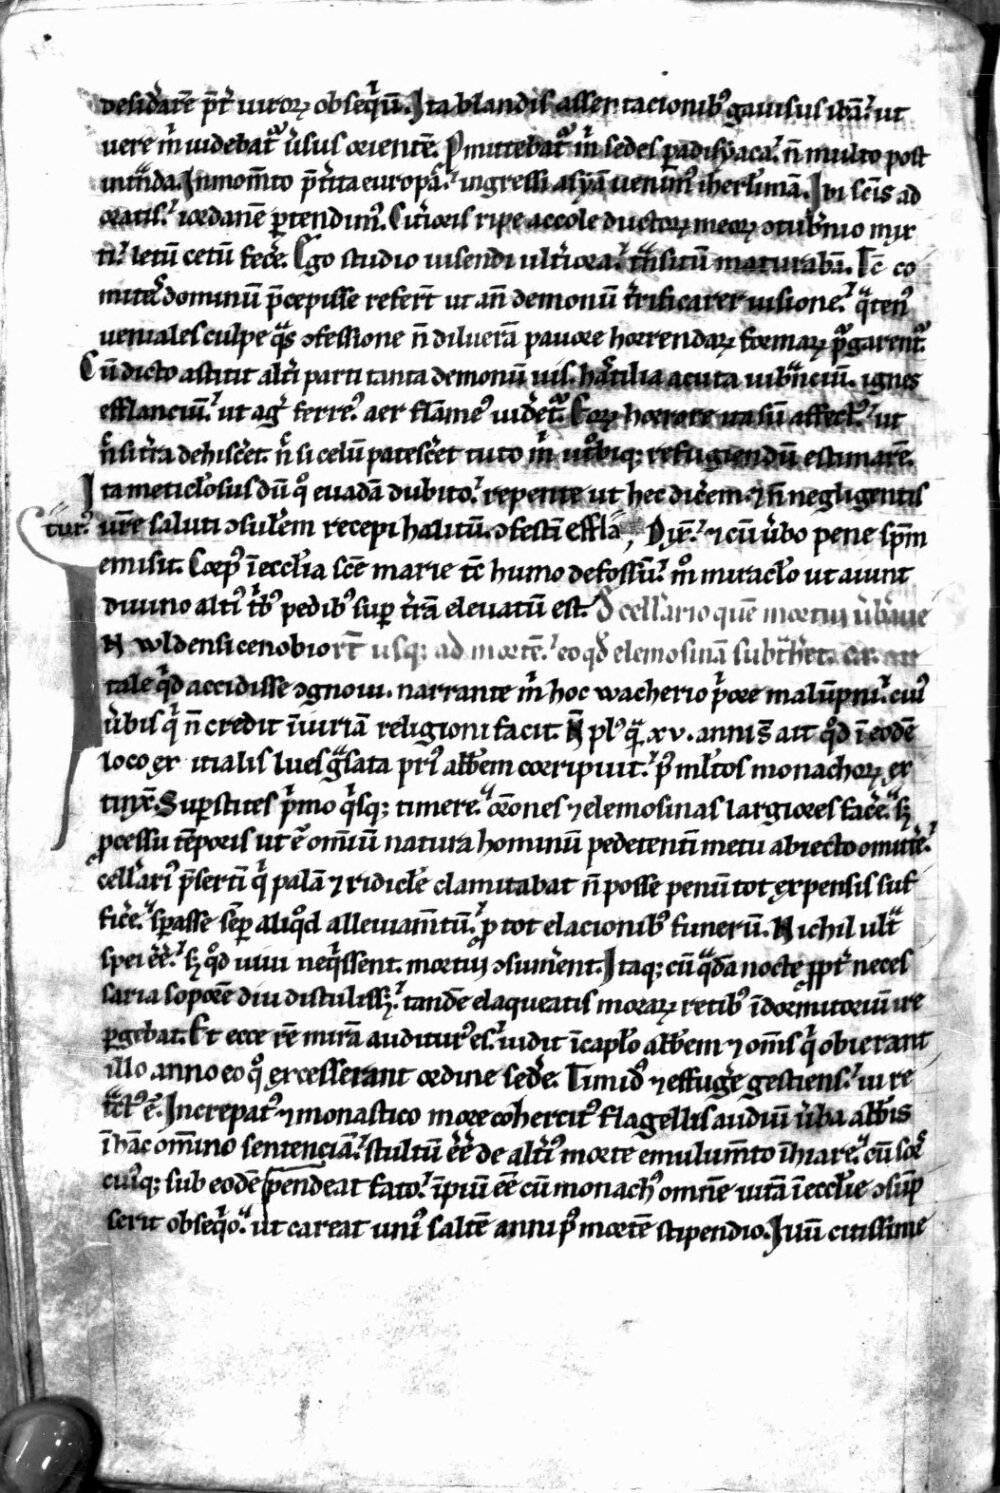 desiđarē p̄t̉ uiroꝝ obseq̓ū. Ita blandis assentacionibꝰ gauisus ibā. ut
uere m̓ uidebat᷑ u̓sus orientē. Pmittebat᷑ m̓ sedes ꝑadisyaca. n̄ multo post
intͣnda. In mom̄to p̄t̉ita europa. ingressi asyā uenimꝰ iherl̓imā. Ibi sc̄is ad
oratis. iordanē ꝑtendimꝰ. Cit̉ioris ripe accole ductoꝝ meoꝝ ꝯtub̓nio mix
ti. letū cetū fec̓e. Ego studio uisendi ult̉iora. tͣnsitū maturabā. Tc̄ co
mitē dominū p̄cepisse refert̄ ut an̄ demonū t̓rificarer uisione. qͣtenꝰ
ueniales culpe qͣs ꝯfessione n̄ diluerā pauore horrendaꝝ formaꝝ pͥgarent᷑.
Cū dicto astitit alt̉i parti tanta demonū uis. hͣstilia acuta uibͣnciū. ignes
efflanciū. ut ag̓ ferreꝰ. aer flāmeꝰ uid̓et᷑. Eoꝝ horrore ita sū affectꝰ. ut
n̓ si t̓ra dehisc̓et. n̓ si celū patesc̓et tuto m̓ ut̉obiq; refugiendū estimarē.
Ita meticl̓osus dū qͦ euadā dubito. repente ut hec dic̓em ⁊ n̄ negligentis
ture ur̄e saluti ꝯsul̓em recepi halitū. ꝯfestī efflā Dix̄. ⁊ cū u̓bo pene sp̄m
emisit. Corpꝰ ī eccl̓ia sc̄e marie tc̄ humo defossū. mͦ miracl̓o ut aiunt
diuino altiꝰ t̉bꝰ pedibꝰ sup̄ t̓rā eleuatū est. D̓ cell̓ario quē mortui u̓baue
N wldensi cenobio rt̄ usq; ad mortē. eo qd̓ elemosinā subtͣh̓et.
tale qͥd accidisse ꝯgnoui. narrante m̓ hoc wacherio p̓ore malūpni. cuiꝰ
u̓bis qͥ n̄ credit īiuriā religioni facit. N̄ plꝰ qͣ xv. annis ait qͦd ī eodē
loco ex itialis lues gͣsata priꝰ abb̄em corripuit. pꝰ ml̓tos monachoꝝ ex
tinx̄. Suꝑstites p̓mo qͥsq; timere. or̄ones ⁊ elemosinas largiores fac̓e. sꝫ
ꝓcessu tēporis ut ē om̄iū natura hominū pedetentī metu abiecto omitt̓e.
cell̓ariꝰ p̄sertī qͥ palā ⁊ ridicl̓e clamitabat n̄ posse penū tot expensis suf
fic̓e. spasse sēꝑ aliqͦd alleuiam̄tū. ꝓ tot elacionibꝰ funerū. Nichil ult̄ͣ
spei ēē. sꝫ qͦd uiui neqͥssent. mortui ꝯsum̓ent. Itaq; cū qͣdā nocte ꝓpt̉ neces
saria soporē diu distulissꝫ. tandē elaqueatis moraꝝ retibꝰ ī dormitoriū ire
ꝑgebat. Et ecce rē mirā auditurꝰ es. uidit ī capl̓o abb̄em ⁊ omīs qͥ obierant
illo anno eo qͦ excesserant ordine sed̓e. Timidꝰ ⁊ effug̓e gestiens. ui re
tͣctꝰ ē. Increpatꝰ ⁊ monastico more cohercitꝰ flagellis audiū u̓ba abb̄is
ī hāc om̄ino sentenciā. stultū ēē de alt̉iꝰ morte emulum̄to īhiare. cū sors
cuiꝰq; sub eodē pendeat fato. īpiū ēē cū monachꝰ omnē uitā ī eccl̓ie ꝯsūp
serit obseq̓o. ut careat uniꝰ saltē anni pꝰ mortē stipendio. Iuū citissime